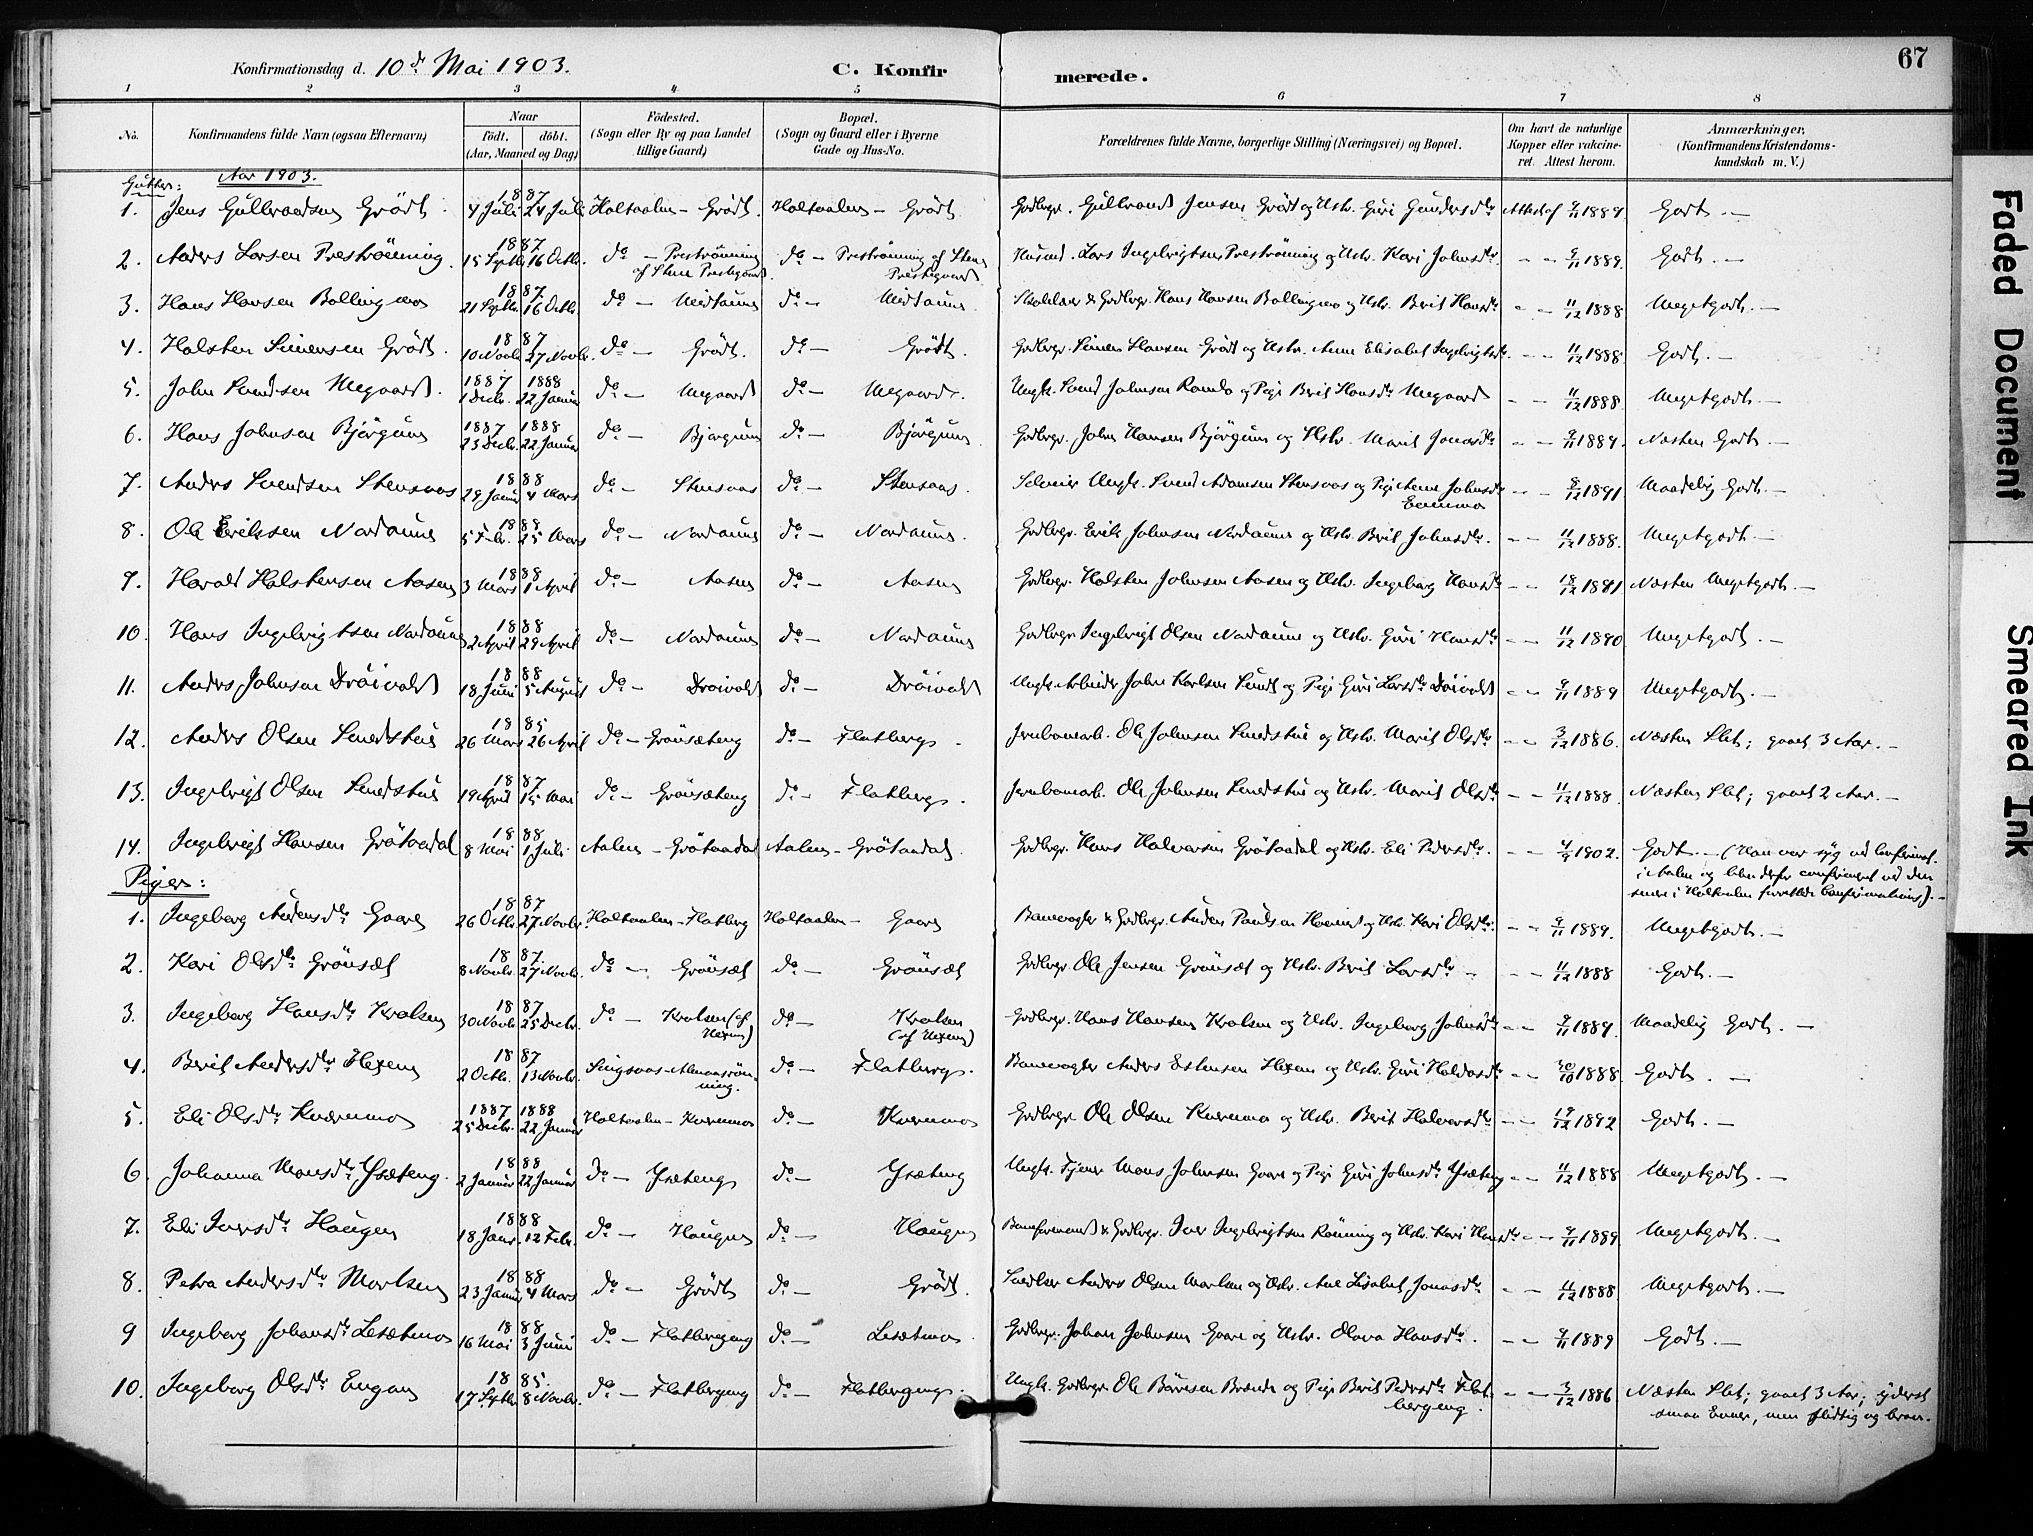 Konfirmationsdag d. 10de Mai 1903.
C. Konfirmerede.
67
1 2 3 4 5 6 7 8
No. Konfirmandens fulde Navn (ogsaa Efternavn) Naar født. døbt. (Aar, Maaned og Dag) Fødested. (Sogn eller By og paa Landet tillige Gaard) Bopæl. (Sogn og Gaard eller i Byerne Gade og Hus-No. Forældrenes fulde Navne, borgerlige Stilling (Næringsvei) og Bopæl. Om havt de naturlige Kopper eller vakcineret. Attest herom. Anmærkninger, (Konfirmandens Kristendomskundskab m. V.)
Gutter: Aar 1903.
1. Jens Gullbrandsen Grödt 1887 4 Juli 24 Juli Holtaalen - Grödt. Holtaalen - Grödt Gullbrand Jensen Grödt og Hstr. Guri Attest af 9/11 1889. Godt. -
2. Anders Larsen Preströnning. 1887 15 Septbr. 16 Octbr. do - Preströnning af Prestegaard do - Preströnning af Prestegaard Husmd. Lars Ingebrigtsen Preströnning og Hstr. Kari Johnsdtr. - - 9/11 1889. Godt. -
3. Hans Hansen Ballingmo 1887 21 Septbr. 16 Octbr. do - do - Grdbrgr. Hans Hansen Ballingmo og Hstr. Berit Hansdtr. - - 11/12 1888 Megetgodt. -
4. Halsten Simensen Grödt. 1887 10 Novbr. 27 Novbr. do - Grödt. do - Grödt. Grdbrgr. Simen Hansen Grödt og Hstr. Anne Elisabet Ingebrigtsdtr. - - 11/12 1888. Godt. -
5. John Svendsen Megaard. 1887 1 Decbr. 1888 22 Januar do - Megaard do - Megaard. Ungk. Svend Johnsen Ramlo og Pige Berit Hansdtr. Megaard - - 11/12 1888. Megetgodt. -
6. Hans Johnsen Björgum 1887 23 Decbr. 1888 22 Januar do - Björgum do - Björgum. Grdbrgr. John Hansen Björgum og Hstr. Marit Jonasdtr. - - 9/11 1889. Næsten Godt. -
7. Anders Svendsen Stensaas 1888 29 Januar 4 Mars do - Stensaas do - Stensaas. Ungk. Svend Adamsen Stensaas og Pige Anne Johnsdtr. - - 8/12 1891 Maadelig Godt. -
8. Ole Eriksen Nordaune 1888 5 Febr. 25 Mars do - Nordaune do - Nordaune. Grdbrgr. Erik Johnsen Nordaune og Hstr. Berit Johnsdtr. - - 11/12 1888. Megetgodt. -
9. Harald Halstensen Aasen 1888 3 Mars 1 April do - Aasen do - Aasen. Grdbrgr. Halsten Johnsen Aasen og Hstr. Ingeborg Hansdtr. - - 18/12 1891 Næsten Megetgodt. -
10. Hans Ingebrigtsen Nordaune 1888 2 April 29 April do - Nordaune do - Nordaune Grdbrgr. Ingebrigt Olsen Nordaune og Hstr. Guri Hansdtr. - - 11/12 1890 Megetgodt. -
11. Anders Johnsen Dröivold 1888 18 Juni 5 August do - Dröivold do - Dröivold Ungk. Arbeider John Karlsen og Pige Guri Larsdtr. Dröivold - - 9/11 1889 Megetgodt. -
12. Anders Olsen Smedstue 1885 26 Mars 26 April do - Grönsæteng do - Flatberg. Jernbanearb. Ole Johnsen Smedstue og Hstr. Marit Olsdtr. - - 3/12 1886. Næsten Slet; gaaet 3 Aar. -
13. Ingebrigt Olsen Smedstue 1887 19 April 15 Mai do - Grönsæteng do - Flatberg. Jernbanearb. Ole Johnsen Smedstue og Hstr. Marit Olsdtr. - - 11/12 1888. Næsten Slet; gaaet 2 Aar. -
14. Ingebrigt Hansen Grötaadal 1888 8 Mai 1 Juli Aalen - Grötaadal Aalen - Grötaadal. Grdbrgr. Hans Halvorsen Grötaadal og Hstr. Eli Pedersdtr. - - 4/9 1902. Godt. - (Han var syg ved Confirmat. i Aalen og blev derfor confirmeret ved den senere i Holtaalen forrettede Confirmation). -
Piger:
1. Ingeborg Andersdtr. Gaare 1887 26 Octbr. 27 Novbr. Holtaalen - Flatberg Holtaalen - Gaare Banevogter & Grdbrgr. Anders Paulsen og Hstr. Kari Olsdtr. - - 9/11 1889. Megetgodt. -
2. Kari Olsdtr. Grönsæt 1887 8 Novbr. 27 Novbr. do - Grönsæt do - Grönsæt Grdbrgr. Ole Jensen Grönsæt og Hstr. Berit Larsdtr. - - 11/12 1888 Godt. -
3. Ingeborg Hansdtr. Kvalsen 1887 30 Novbr. 25 Decbr. do - Kvalsen (af Hexem) do - Kvalsen (af Hexem) Grdbrgr. Hans Hansen Kvalsen og Hstr. Ingeborg Johnsdtr. - - 9/11 1889. Maadelig Godt. -
4. Berit Andersdtr. Hexem 1887 2 Octbr. 13 Novbr. Singsaas - Almaasrönning. do - Flatberg. Banevogter Anders Estensen Hexem og Hstr. Guri Haldosdtr. - - 20/10 1888. Godt. -
5. Eli Olsdtr. Kværnmo 1887 25 Decbr. 1888 22 Januar Holtaalen - Kværnmo do - Kværnmo Grdbrgr. Ole Olsen Kværnmo og Hstr. Berit Halvorsdtr. - - 19/12 1892 Godt. -
6. Johanna Monsdtr. Ysæteng. 1888 2 Januar 22 Januar do - Ysæteng do - Ysæteng Ungk. Tjener Mons Johnsen Gaare og Pige Guri Johnsdtr. Ysæteng - - 11/12 1888 Megetgodt. -
7. Eli Iversdtr. Haugen 1888 18 Janr. 12 Febr. do - Haugen do - Haugen Baneformand & Grdbrgr. Iver Ingebrigtsen Rönning og Hstr. Kari Hansdtr. - - 9/11 1889. Megetgodt. -
8. Petra Andersdtr. Morksen 1888 23 Januar 4 Mars do - Grödt do - Grödt. Anders Olsen Morksen og Hstr. Ane Lisabet Jonasdtr. - - 11/12 1888. Megetgodt. -
9 Ingeborg Johansdtr. Lesætmo 1888 16 Mai 3 Juni do - Flatbergeng do - Lesætmo. Grdbrgr. Johan Johnsen Gaare og Hstr. Olava Hansdtr. - - 9/11 1889 Godt. -
10. Ingeborg Olsdtr. Engan 1885. 17 Septbr. 8 Novbr. do - Flatbergeng do - Flatbergeng. Ungk. Grdbrgr. Ole Börresen og Pige Berit Pedersdtr. Flatbergeng. - - 3/12 1886 Næsten Slet; gaaet 3 Aar; yderst smaa Evner, men flittig og brav.
Faded Document
Smeared Ink